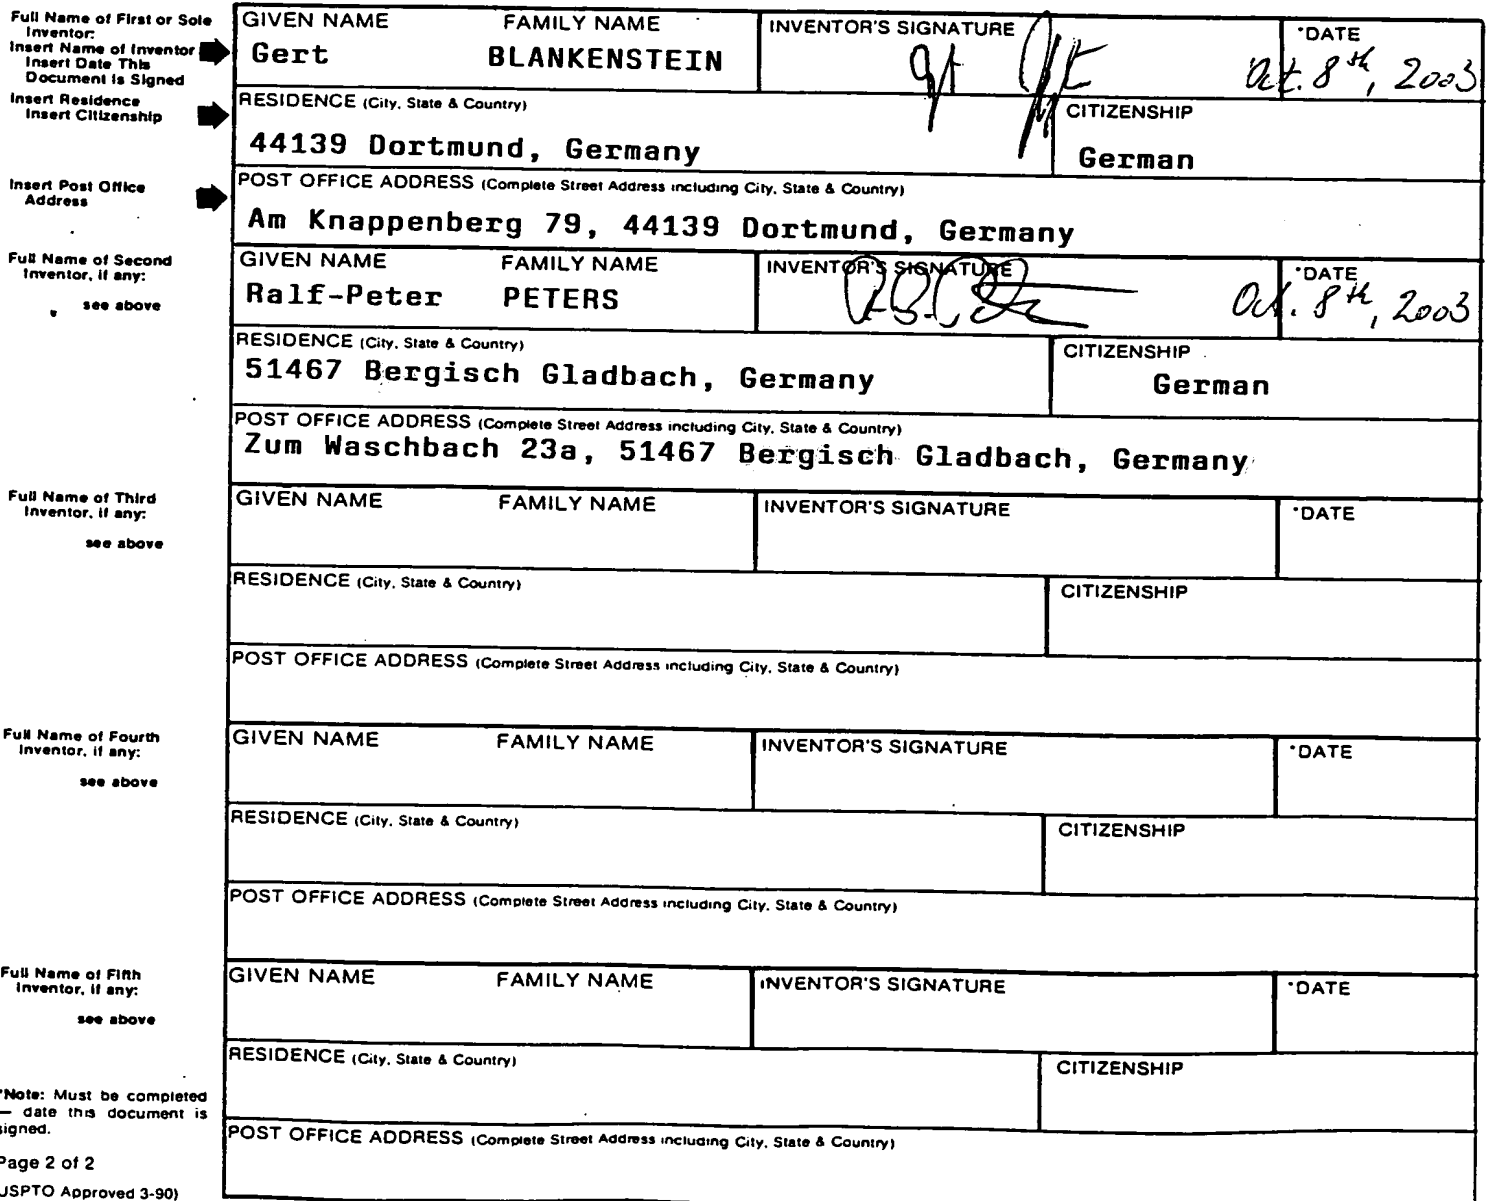 Full Name of First or Sole
Inventor:
Insert Name of Inventor
Insert Date This
Document Is Signed
GIVEN NAME FAMILY NAME INVENTOR'S SIGNATURE *DATE
Gert BLANKENSTEIN Oct. 8th, 2003
Insert Residence
Insert Citizenship
RESIDENCE (City, State & Country) CITIZENSHIP
44139 Dortmund, Germany German
Insert Post Office
Address
POST OFFICE ADDRESS (Complete Street Address including City, State & Country)
Am Knappenberg 79, 44139 Dortmund, Germany
Full Name of Second
Inventor, if any:
see above
GIVEN NAME FAMILY NAME INVENTOR'S SIGNATURE *DATE
Ralf-Peter PETERS Oct. 8th, 2003
RESIDENCE (City, State & Country) CITIZENSHIP
51467 Bergisch Gladbach, Germany German
POST OFFICE ADDRESS (Complete Street Address including City, State & Country)
Zum Waschbach 23a, 51467 Bergisch Gladbach, Germany
Full Name of Third
Inventor, if any:
see above
GIVEN NAME FAMILY NAME INVENTOR'S SIGNATURE *DATE
RESIDENCE (City, State & Country) CITIZENSHIP
POST OFFICE ADDRESS (Complete Street Address including City, State & Country)
Full Name of Fourth
Inventor, if any:
see above
GIVEN NAME FAMILY NAME INVENTOR'S SIGNATURE *DATE
RESIDENCE (City, State & Country) CITIZENSHIP
POST OFFICE ADDRESS (Complete Street Address including City, State & Country)
Full Name of Fifth
Inventor, if any:
see above
GIVEN NAME FAMILY NAME INVENTOR'S SIGNATURE *DATE
RESIDENCE (City, State & Country) CITIZENSHIP
*Note: Must be completed
— date this document is
signed.
POST OFFICE ADDRESS (Complete Street Address including City, State & Country)
Page 2 of 2
USPTO Approved 3-90)